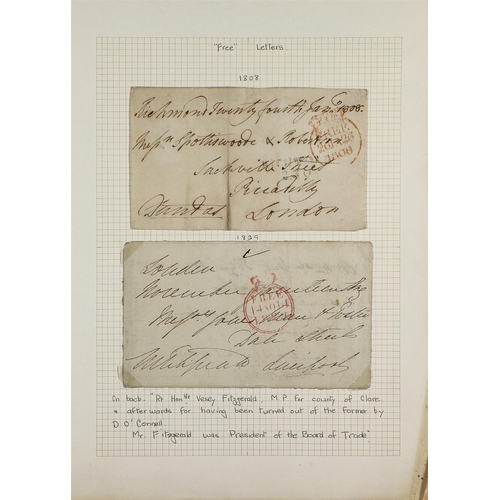 "Free" Letters
1808
Richmond Twenty fourth Jany 1808.
Messrs Spottiswoode & Robertson
Sackville Street
Piccadilly
Dundas London
FREE
1829
London
November fourteen
Messrs John &
FREE
14 NO 14
Dale Street
Liverpool
On back. "Rt Honble Vesey Fitzgerald, M.P. for county of Clare
& afterwards for having been turned out of the former by
D. O'Connell.
Mr. Fitzgerald was President of the Board of Trade"